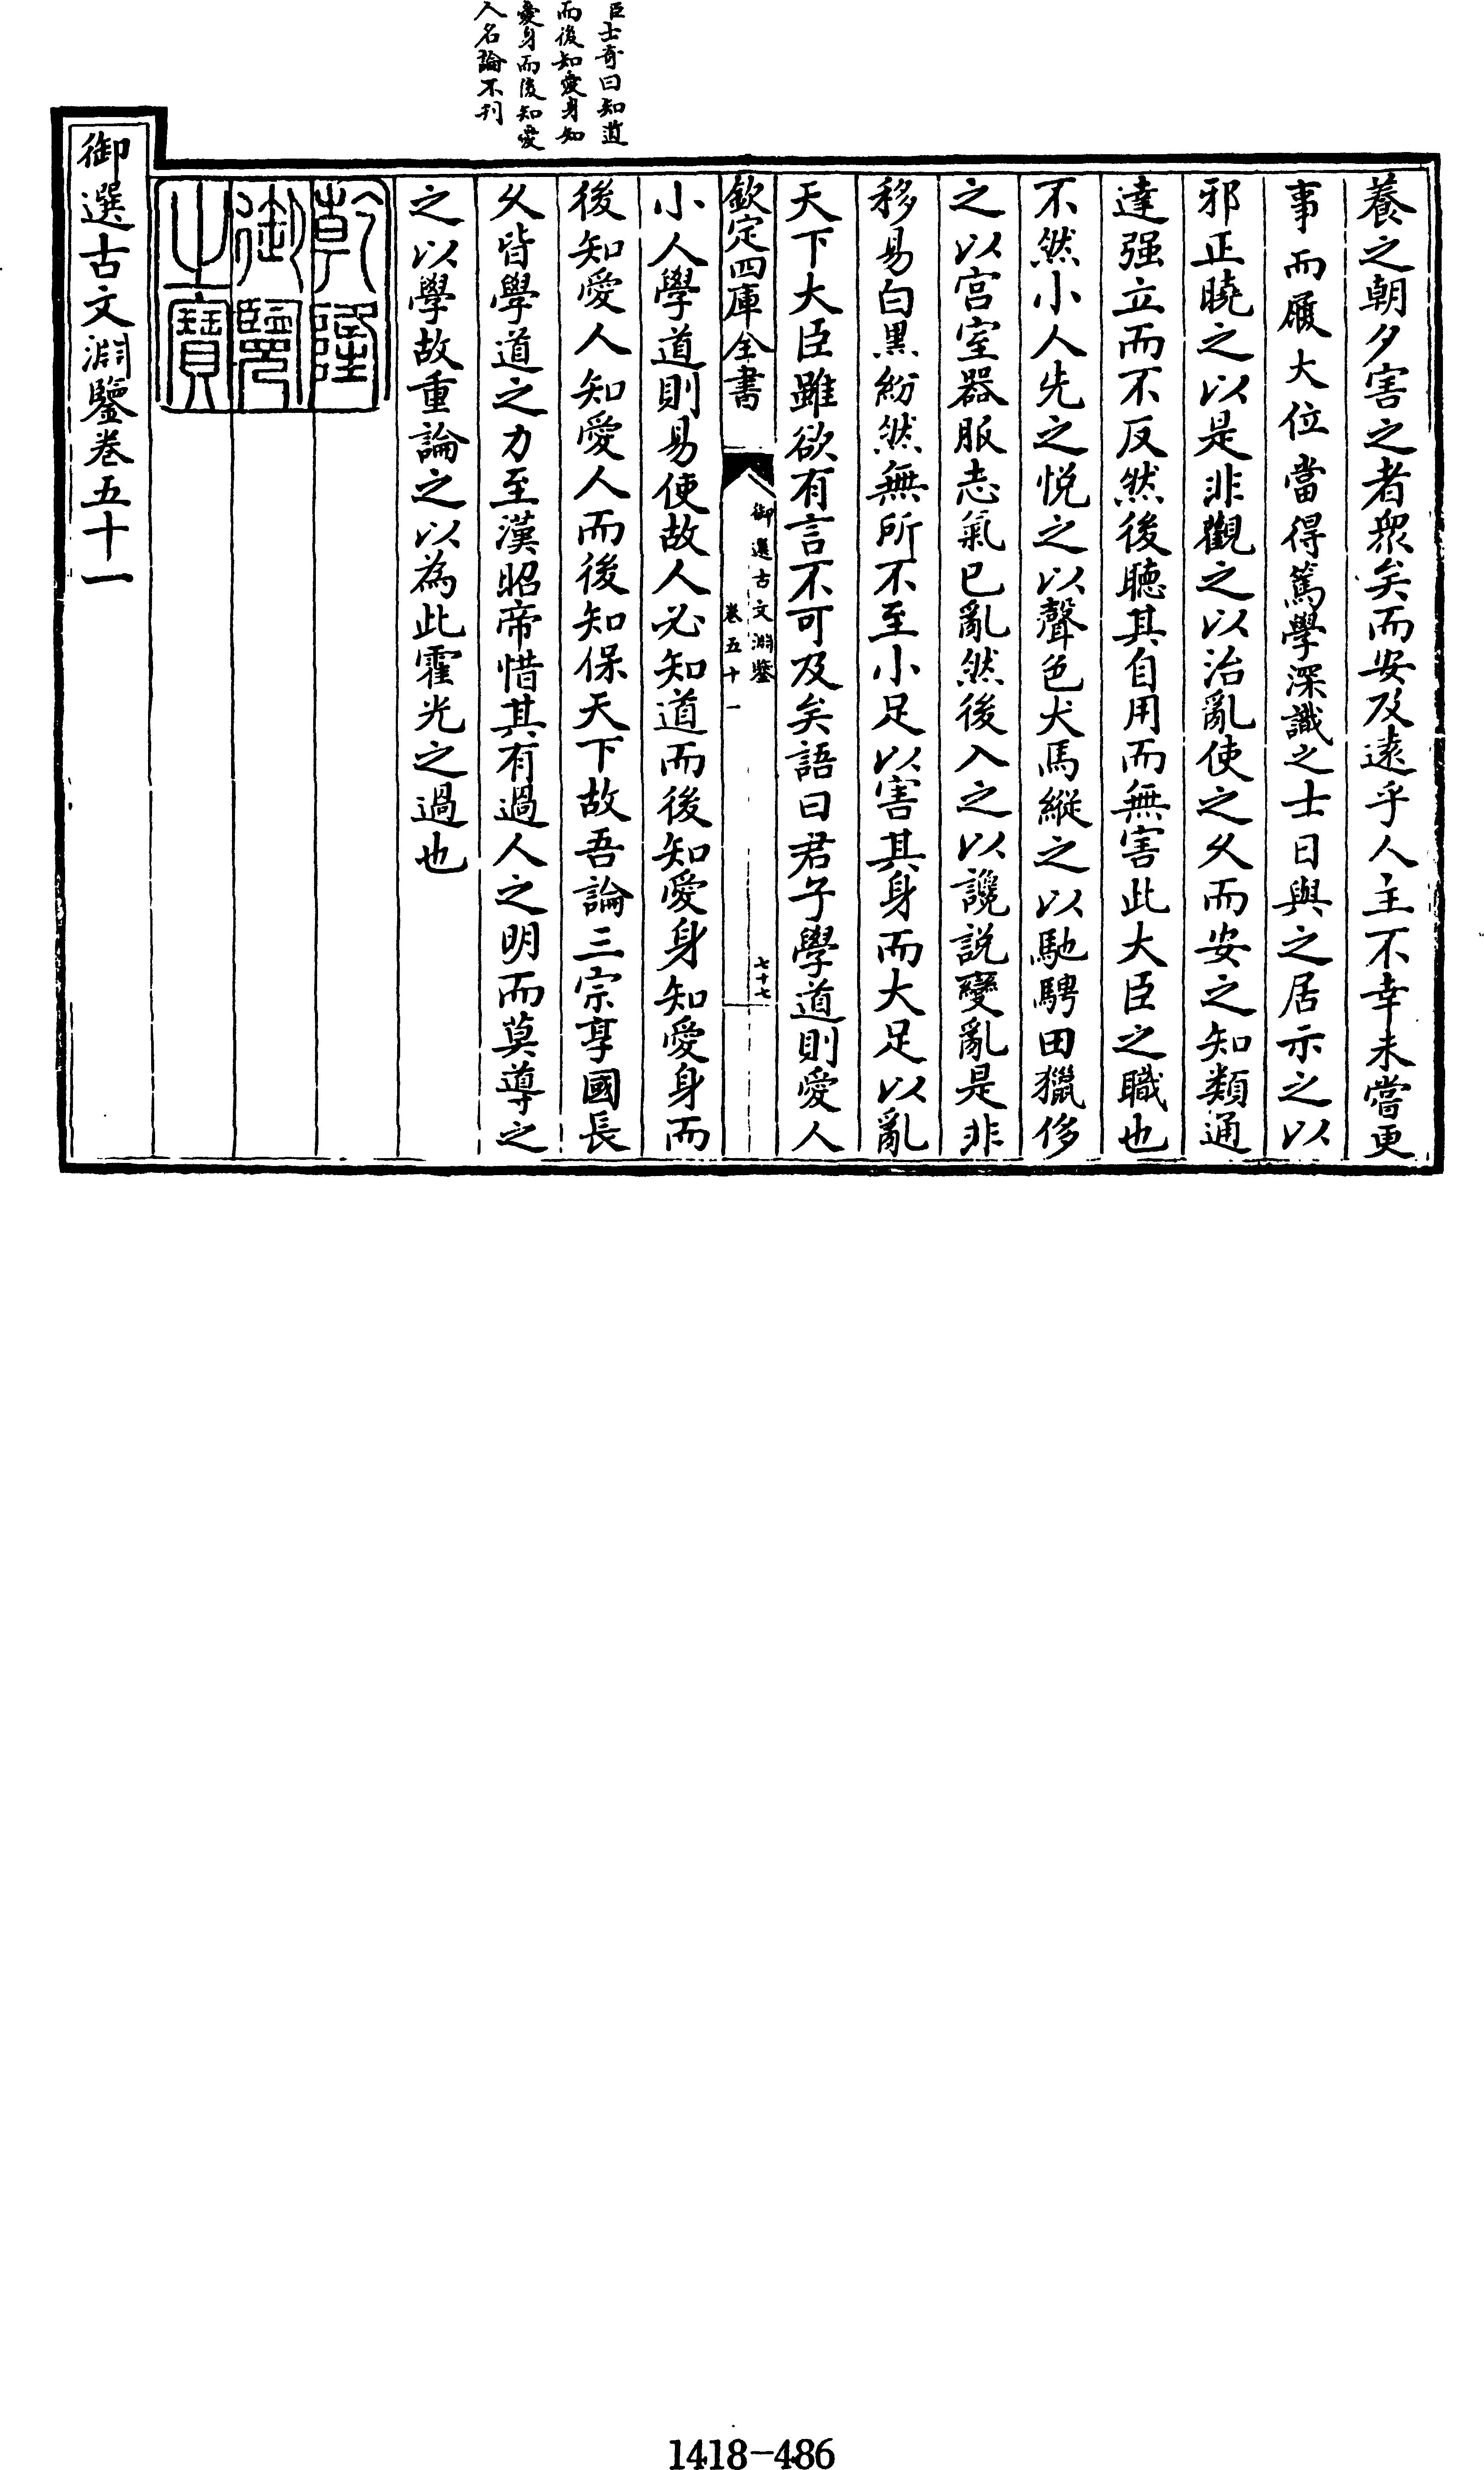 臣士奇曰知道
而後知愛身知
愛身而後知愛
人名論不刊
養之朝夕害之者衆矣而安及遠乎人主不幸未嘗更
事而履大位當得篤學深識之士日與之居示之以
邪正曉之以是非觀之以治亂使之乆而安之知類通
達强立而不反然後聽其自用而無害此大臣之職也
不然小人先之悅之以聲色犬馬縱之以馳騁田獵侈
之以宫室器服志氣已亂然後入之以讒説變亂是非
移易白黒紛然無所不至小足以害其身而大足以亂
天下大臣雖欲有言不可及矣語曰君子學道則愛人
欽定四庫全書
御選古文淵鑒
卷五十一
七十七
小人學道則易使故人必知道而後知愛身知愛身而
後知愛人知愛人而後知保天下故吾論三宗享國長
乆皆學道之力至漢昭帝惜其有過人之明而莫導之
之以學故重論之以為此霍光之過也
乾隆
御覽
之寶
御選古文淵鑒卷五十一
1418-486